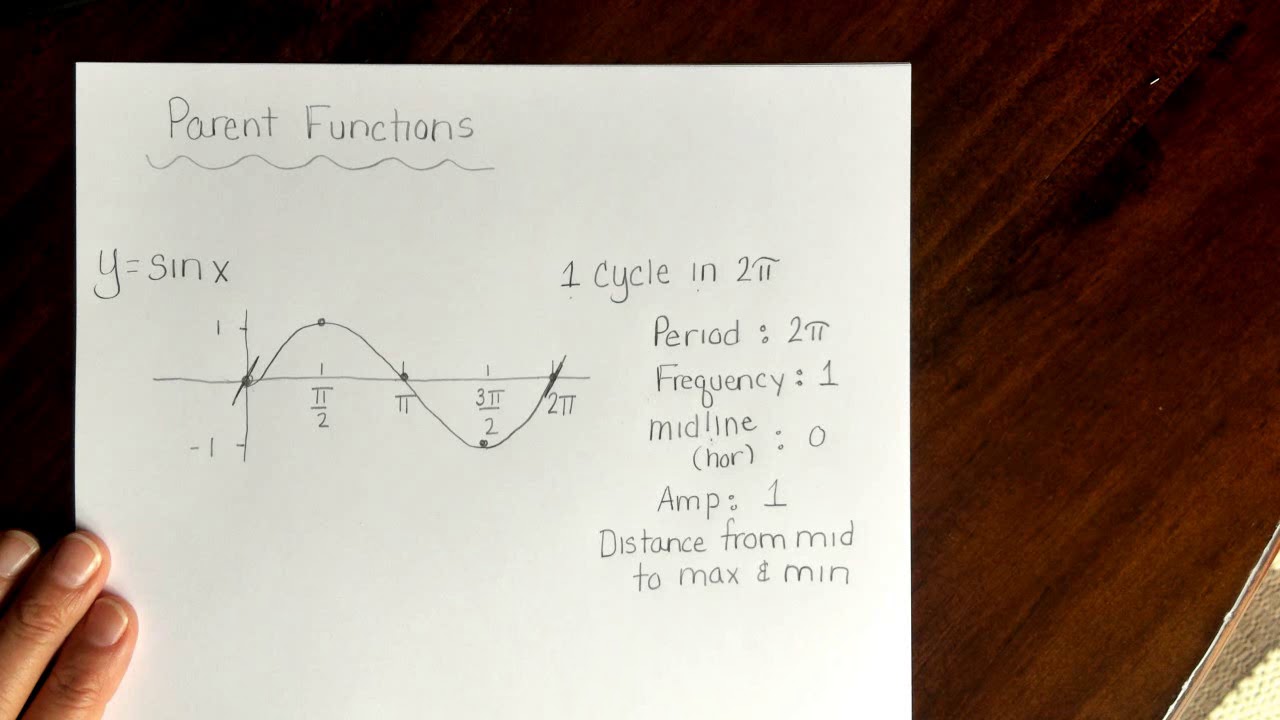 Parent Functions
y = sin x
1
π/2
π
3π/2
2π
-1
1 cycle in 2π
Period : 2π
Frequency : 1
midline : 0
(hor)
Amp : 1
Distance from mid
to max & min